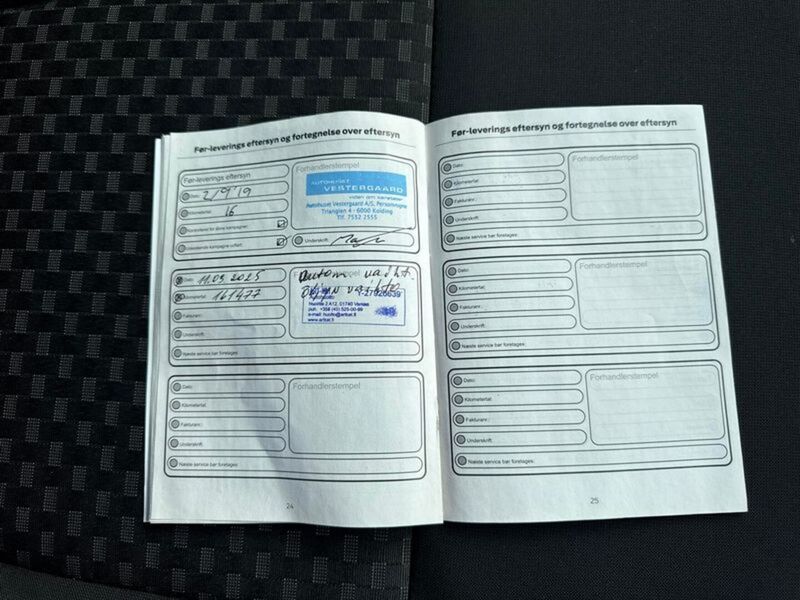 Før-leverings eftersyn og fortegnelse over eftersyn
Før-leverings eftersyn
Dato: 2/9'19
Kilometertal: 16
Kontrolleret for åbne kampagner:
Udestående kampagne udført:
Forhandlerstempel
AUTOHUSET
VESTERGAARD
Autohuset Vestergaard A/S, Personvogne
Trianglen 4 - 6000 Kolding
Tlf. 7552 2555
Underskrift:
Dato: 11.03.2025
Kilometertal: 161477
Fakturanr.:
Underskrift:
Næste service bør foretages:
Forhandlerstempel
Autom. vaiht.
öljyn vaihto
27020639
01740 Vantaa
puh. +358 (40) 525-00-89
www.artkat.fi
Dato:
Kilometertal:
Fakturanr.:
Underskrift:
Næste service bør foretages:
Forhandlerstempel
24
Før-leverings eftersyn og fortegnelse over eftersyn
Dato:
Kilometertal:
Fakturanr.:
Underskrift:
Næste service bør foretages:
Forhandlerstempel
Dato:
Kilometertal:
Fakturanr.:
Underskrift:
Næste service bør foretages:
Forhandlerstempel
Dato:
Kilometertal:
Fakturanr.:
Underskrift:
Næste service bør foretages:
Forhandlerstempel
25